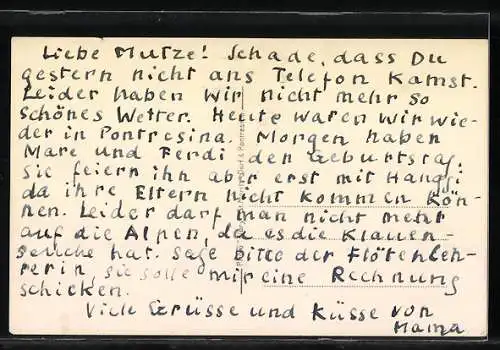 Liebe Mutze! Schade, dass Du
gestern nicht ans Telefon Kamst.
Leider haben wir nicht mehr so
schönes Wetter. Heute waren wir wie-
der in Pontresina. Morgen haben
Mare und Ferdi den Geburtstag,
sie feiern ihn aber erst mit
da ihre Eltern nicht kommen kön-
nen. Leider darf man nicht mehr
auf die Alpen, da es die Klauen-
seuche hat. Sage bitte der Flötenleh-
rerin, sie solle mir eine Rechnung
schicken.
Viele Grüsse und Küsse von
Mama